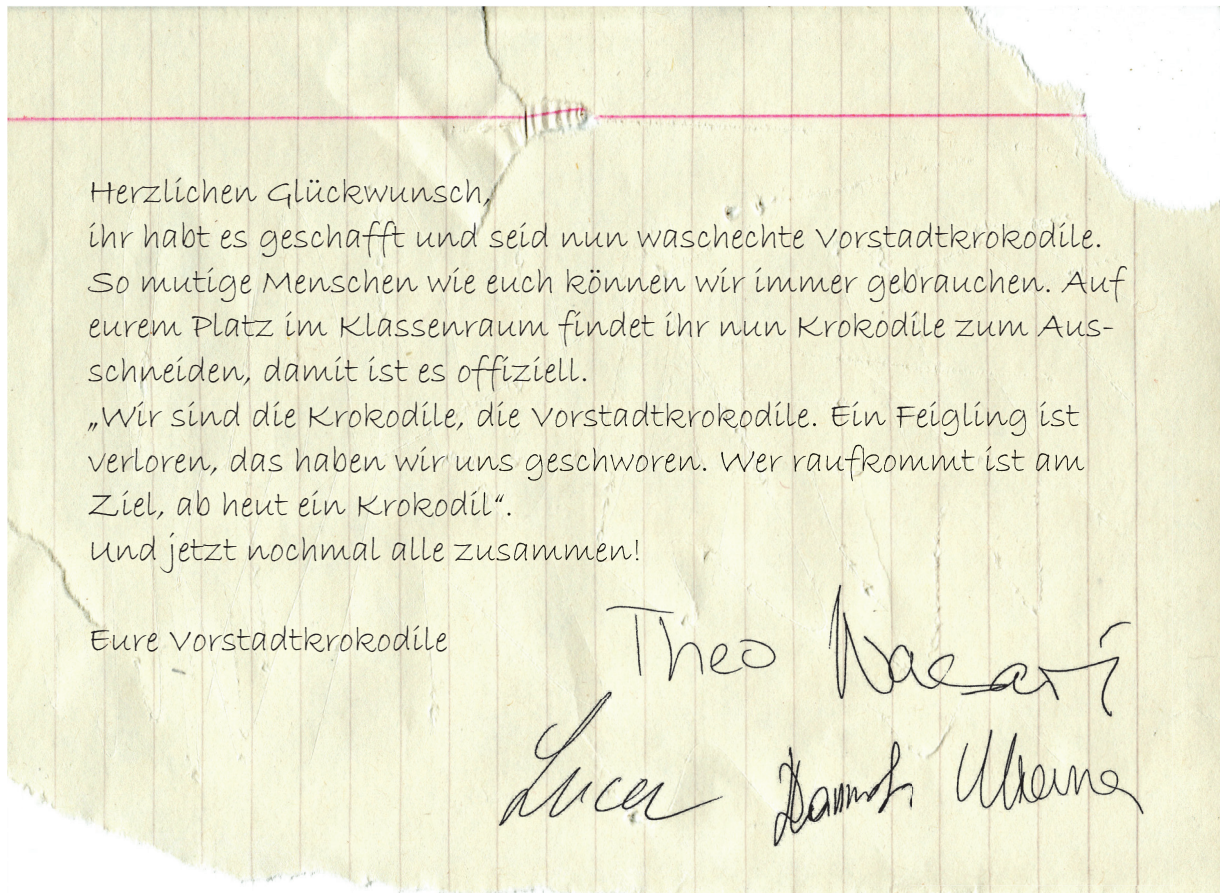 Herzlichen Glückwunsch,
ihr habt es geschafft und seid nun waschechte Vorstadtkrokodile.
So mutige Menschen wie euch können wir immer gebrauchen. Auf
eurem Platz im Klassenraum findet ihr nun Krokodile zum Aus-
schneiden, damit ist es offiziell.
„Wir sind die Krokodile, die Vorstadtkrokodile. Ein Feigling ist
verloren, das haben wir uns geschworen. Wer raufkommt ist am
Ziel, ab heut ein Krokodil“.
Und jetzt nochmal alle zusammen!
Eure Vorstadtkrokodile
Theo
Luca